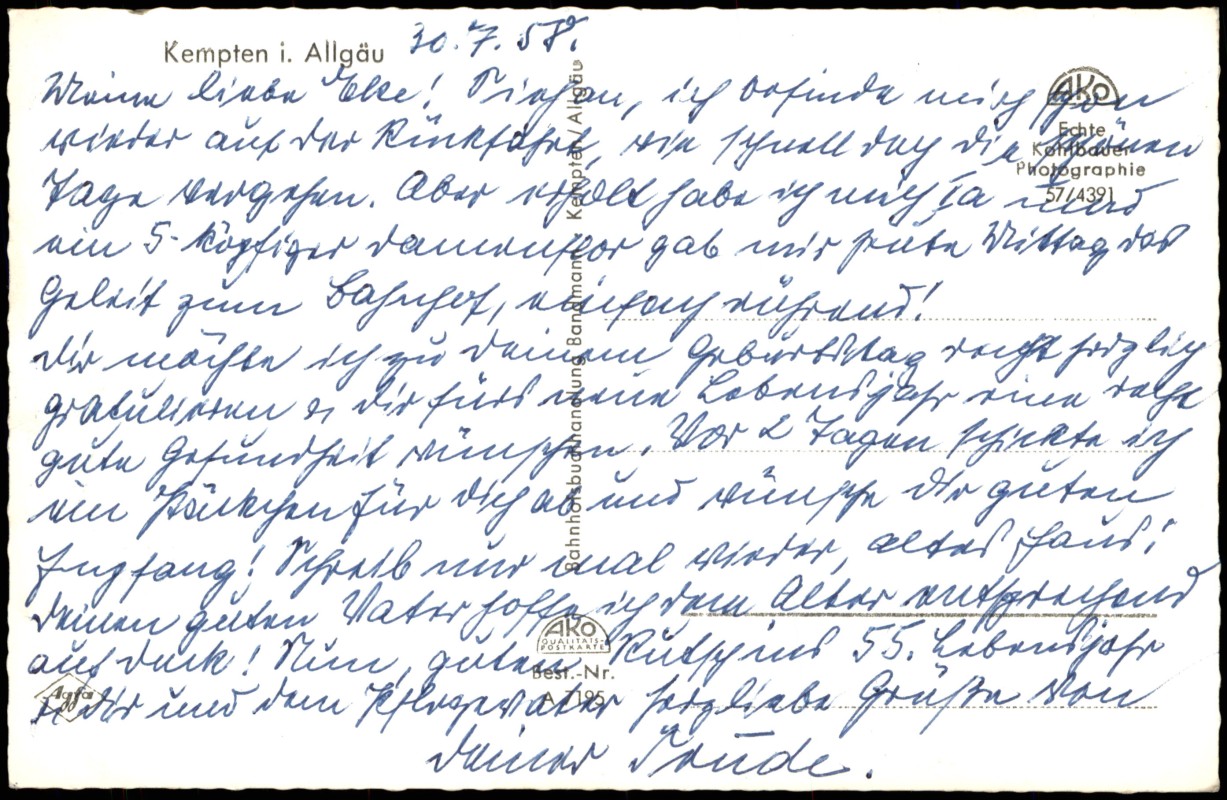 Kempten i. Allgäu 30.7.58.
Meine liebe Elke! Siehan, ich befinde mich schon
wieder auf der Rückfahrt, wie schnell doch die schönen
Tage vergehen. Aber erholt habe ich mich ja und
ein 5-köpfiger Damenflor gab mir heute Mittag das
Geleit zum Bahnhof, einfach rührend!
Dir möchte ich zu Deinem Geburtstag recht herzlich
gratulieren u. Dir fürs neue Lebensjahr eine recht
gute Gesundheit wünschen. Vor 2 Tagen schickte ich
ein Päckchen für Dich ab und wünsche Dir guten
Empfang! Schreib nur mal wieder, altes Haus!
Deinen guten Vater hoffe ich dem Alter entsprechend
auf Deck! Nun, guten Rutsch ins 55. Lebensjahr
u. Dir und dem Pflegevater herzliebe Grüße von
Deiner
Bahnhofsbuchhandlung Bandmann, Kempten/Allgäu
AKO
Echte
Kohlbauer
Photographie
57/4391
AKO
QUALITÄTS-
POSTKARTE
Best.-Nr.
A 7195
Agfa